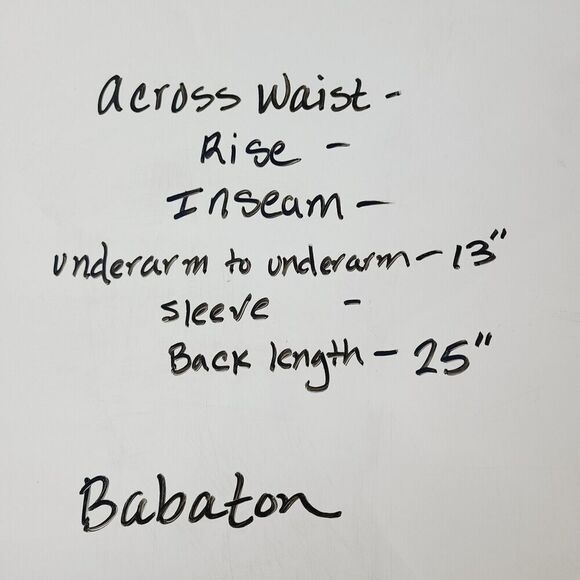 Across Waist -
Rise -
Inseam -
underarm to underarm - 13"
sleeve -
Back length - 25"
Babaton